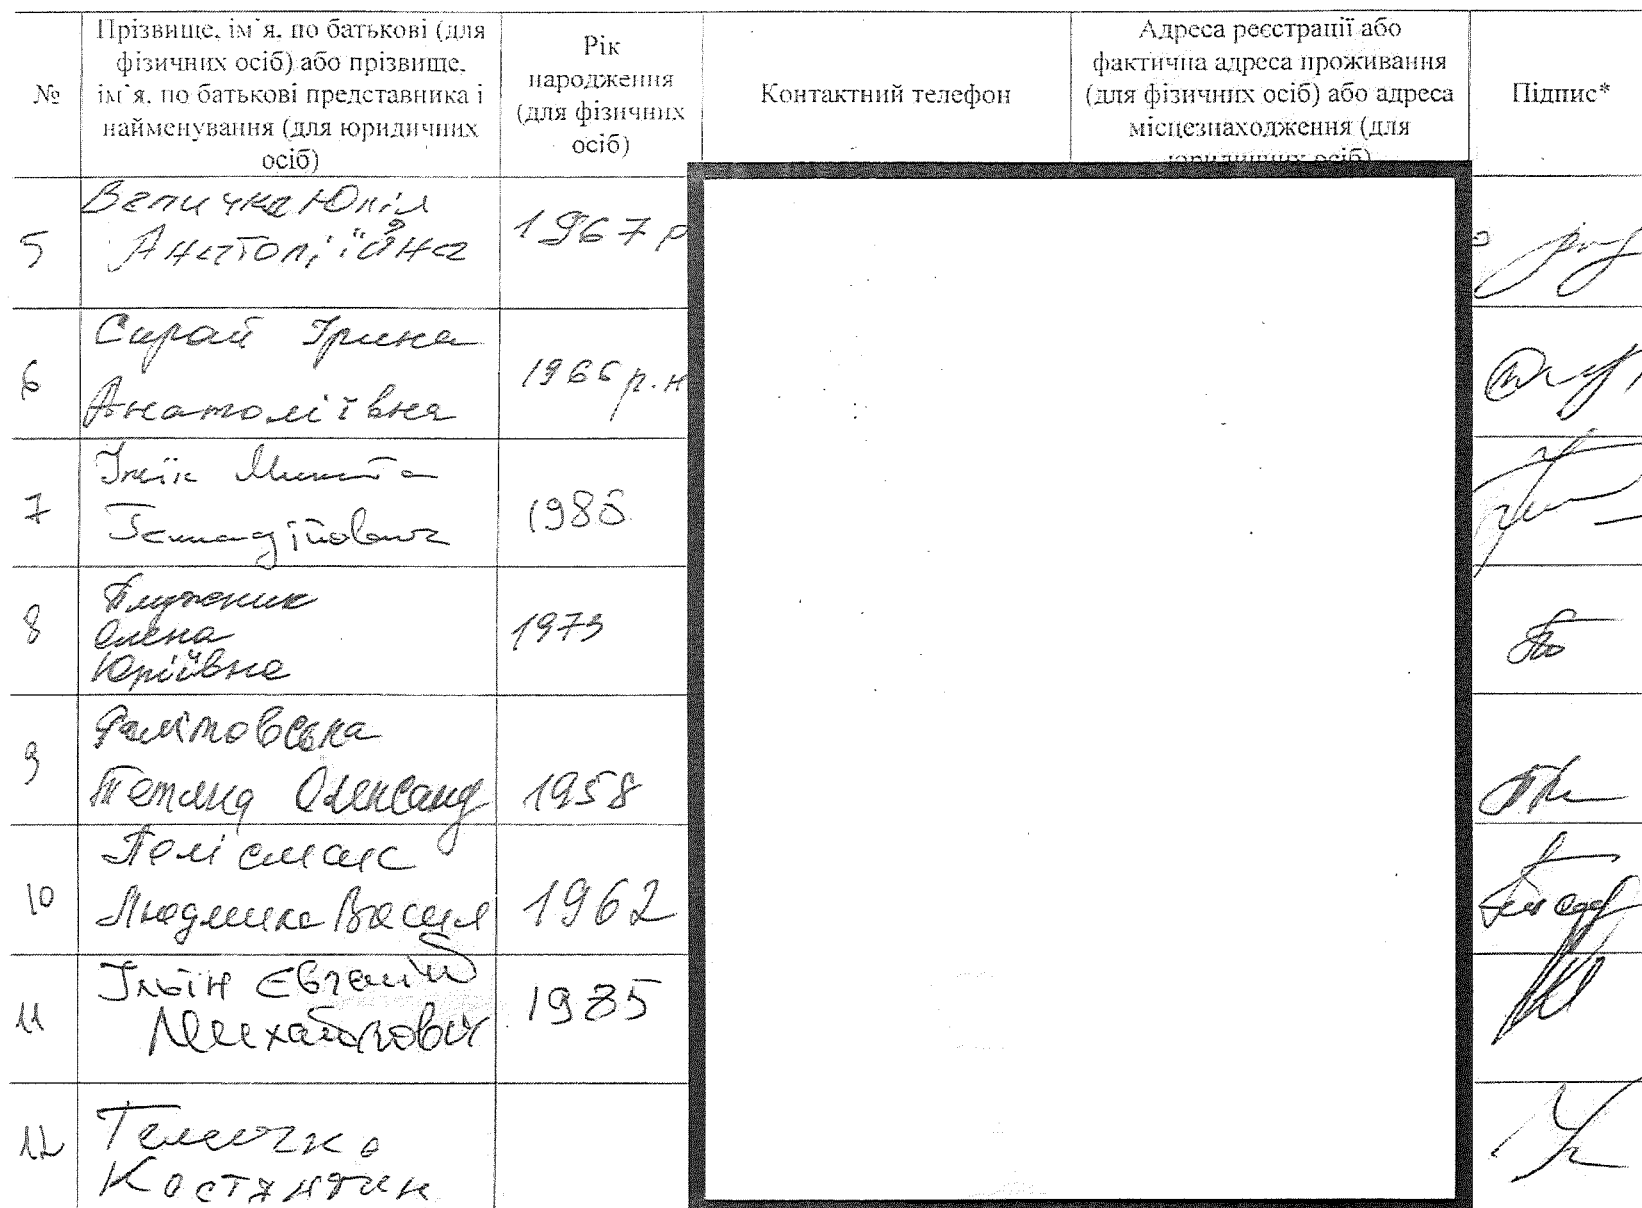 №
Прізвище, ім`я, по батькові (для
фізичних осіб) або прізвище,
ім`я, по батькові представника і
найменування (для юридичних
осіб)
Рік
народження
(для фізичних
осіб)
Контактний телефон
Адреса реєстрації або
фактична адреса проживання
(для фізичних осіб) або адреса
місцезнаходження (для
юридичних осіб)
Підпис*
5
Величка Юлія
Анатоліївна
1967 р
6
Сирай Ірина
Анатоліївна
1966 р.н
7
Микита
Геннадійович
198
8
Плужник
Олена
Юріївна
1973
9
Тетяна Олександ
1958
10
Людмила Васил
1962
11
Ільїн Євгеній
Михайлович
1985
12
Костянтин